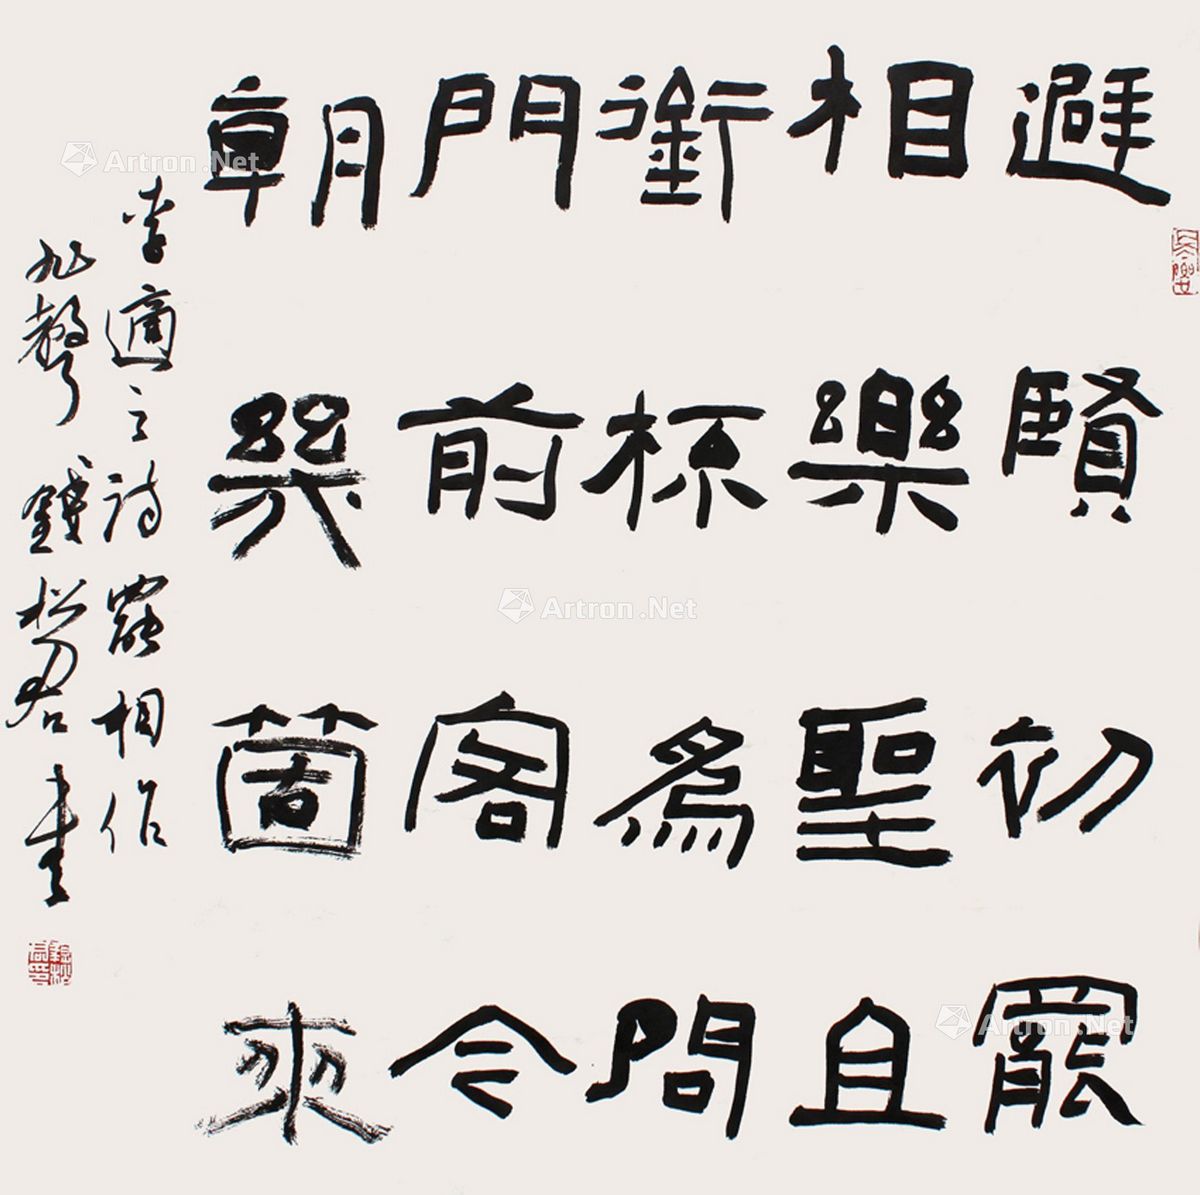 避賢初罷
相樂聖且
銜杯為問
門前客今
朝幾箇來
李適之詩罷相作
九聲 錢松君書
Artron.Net
Artron.Net
Artron.Net